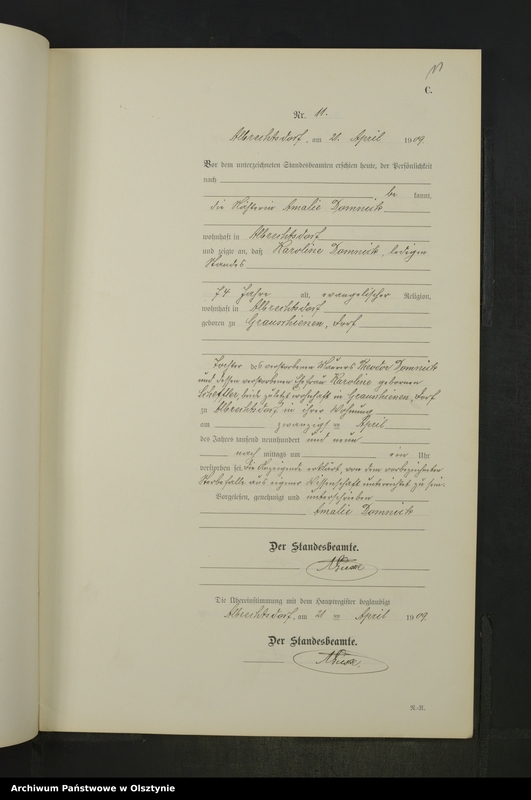 C.
Nr. 11.
Albrechtsdorf, am 21. April 1909.
Vor dem unterzeichneten Standesbeamten erschien heute, der Persönlichkeit
nach
be kannt,
die Amalie Domnick
wohnhaft in Albrechtsdorf
und zeigte an, daß Karoline Domnick, ledigen
Standes
74 Jahre alt, evangelischer Religion,
wohnhaft in Albrechtsdorf
geboren zu Grauschienen, Dorf
Tochter des verstorbenen Maurers Theodor Domnick
und dessen verstorbenen Ehefrau Karoline geborenen
Scheffler, beide zuletzt wohnhaft in Grauschienen, Dorf
zu Albrechtsdorf in ihrer Wohnung
am zwanzigsten April
des Jahres tausend neunhundert und neun
nach mittags um ein Uhr
verstorben sei. Die Anzeigende erklärt, von dem vorbezeichneten
Sterbefalle aus eigener Wissenschaft unterrichtet zu sein.
Vorgelesen, genehmigt und unterschrieben
Amalie Domnick
Der Standesbeamte.
Die Übereinstimmung mit dem Hauptregister beglaubigt
Albrechtsdorf, am 21 ten April 1909.
Der Standesbeamte.
R.-R.
Archiwum Państwowe w Olsztynie